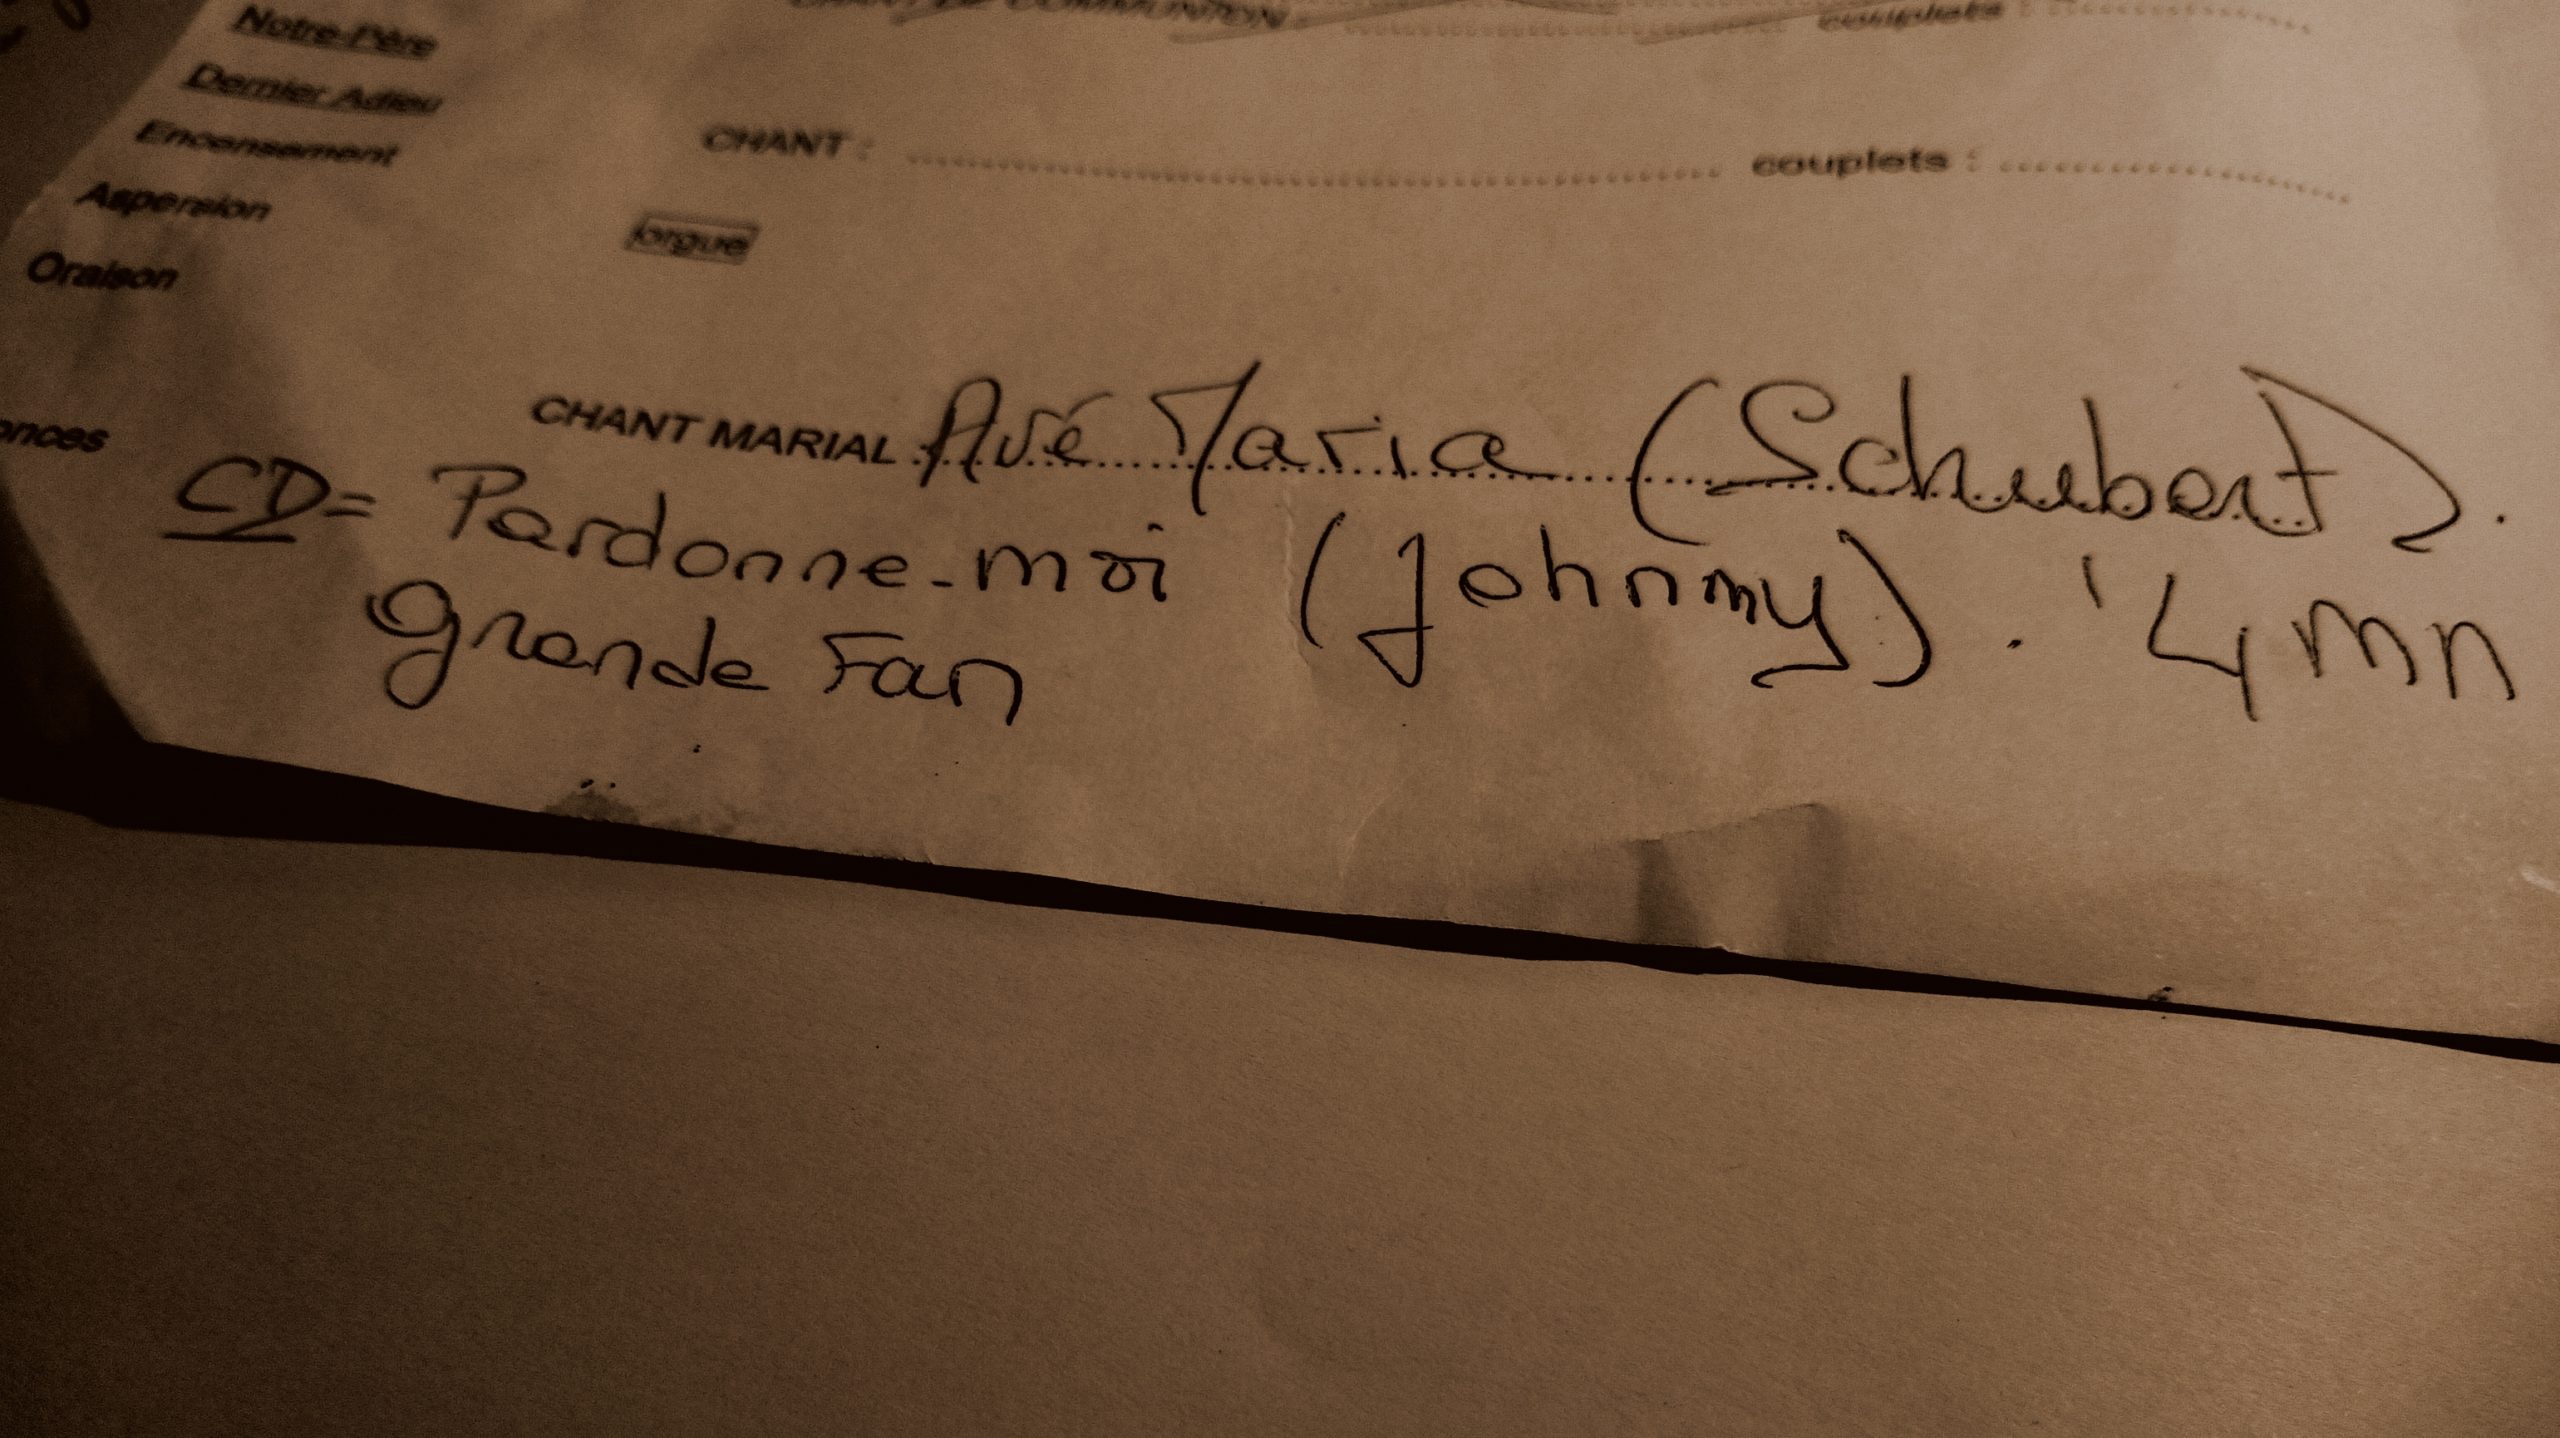 CHANT DE COMMUNION : couplets :
Notre-Père
Dernier Adieu
Encensement CHANT : couplets :
Aspersion
orgue
Oraison
CHANT MARIAL Avé Maria (Schubert).
CD= Pardonne-moi (Johnny). '4mn
grande Fan